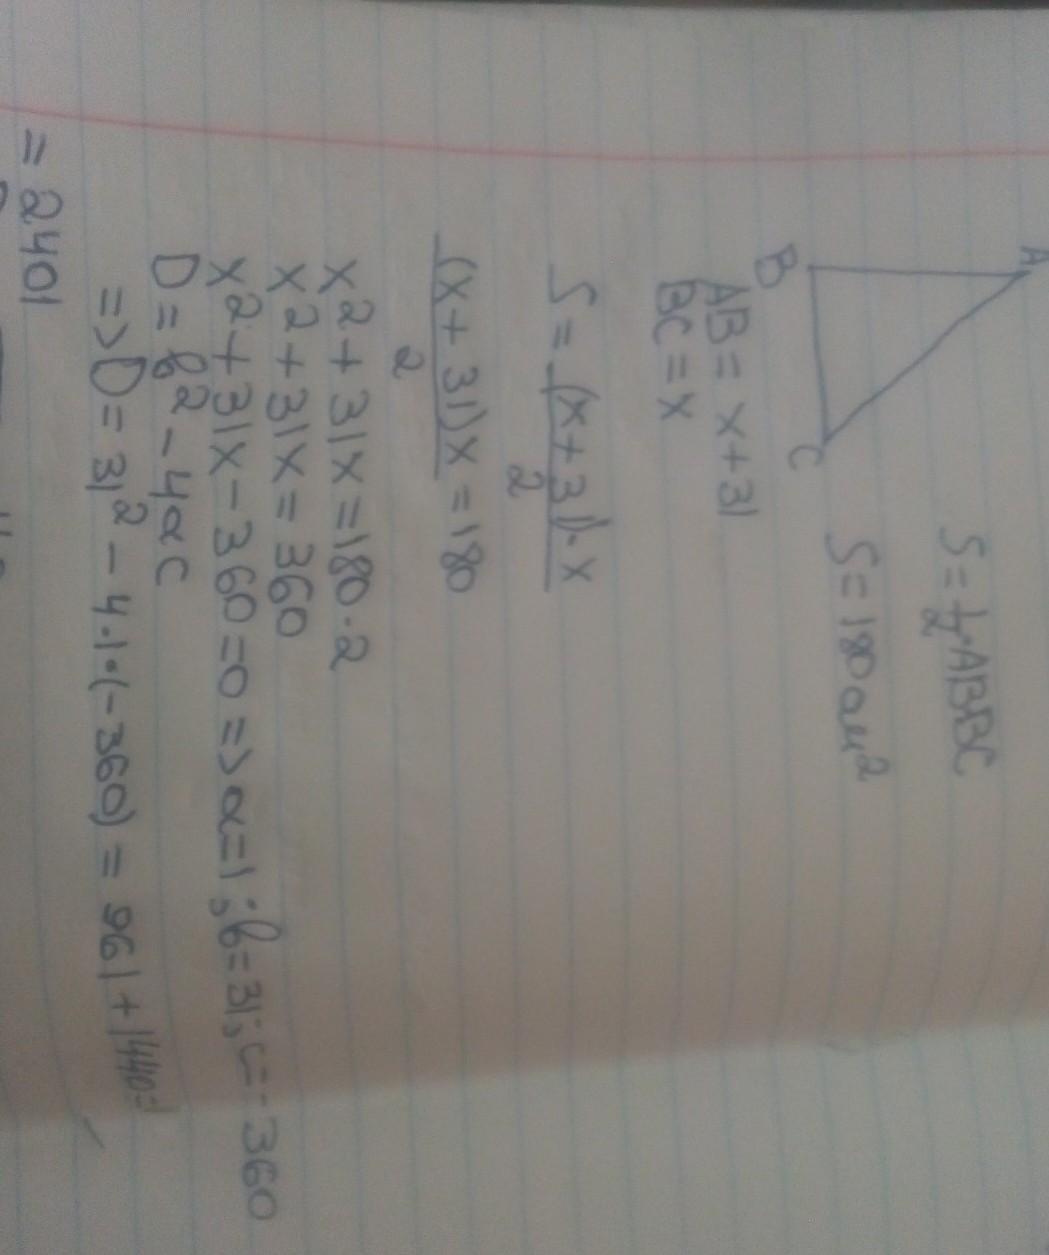 A
B
C
S = 1/2 · AB·BC
S = 180 см²
AB = x + 31
BC = x
S = (x + 31) · x / 2
(x + 31)x / 2 = 180
x² + 31x = 180 · 2
x² + 31x = 360
x² + 31x - 360 = 0 => a = 1 ; b = 31 ; c = -360
D = b² - 4ac
=> D = 31² - 4 · 1 · (-360) = 961 + 1440 =
= 2401